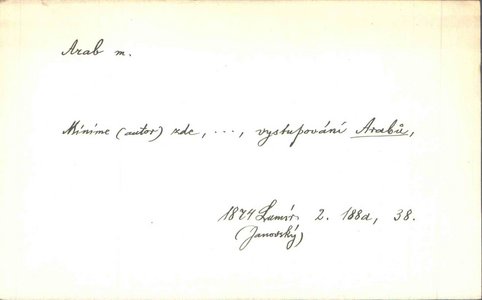 Arab m.
Míníme (autor) zde, ..., vystupování Arabů,
1874 Lumír 2. 188a, 38.
(Janovský)